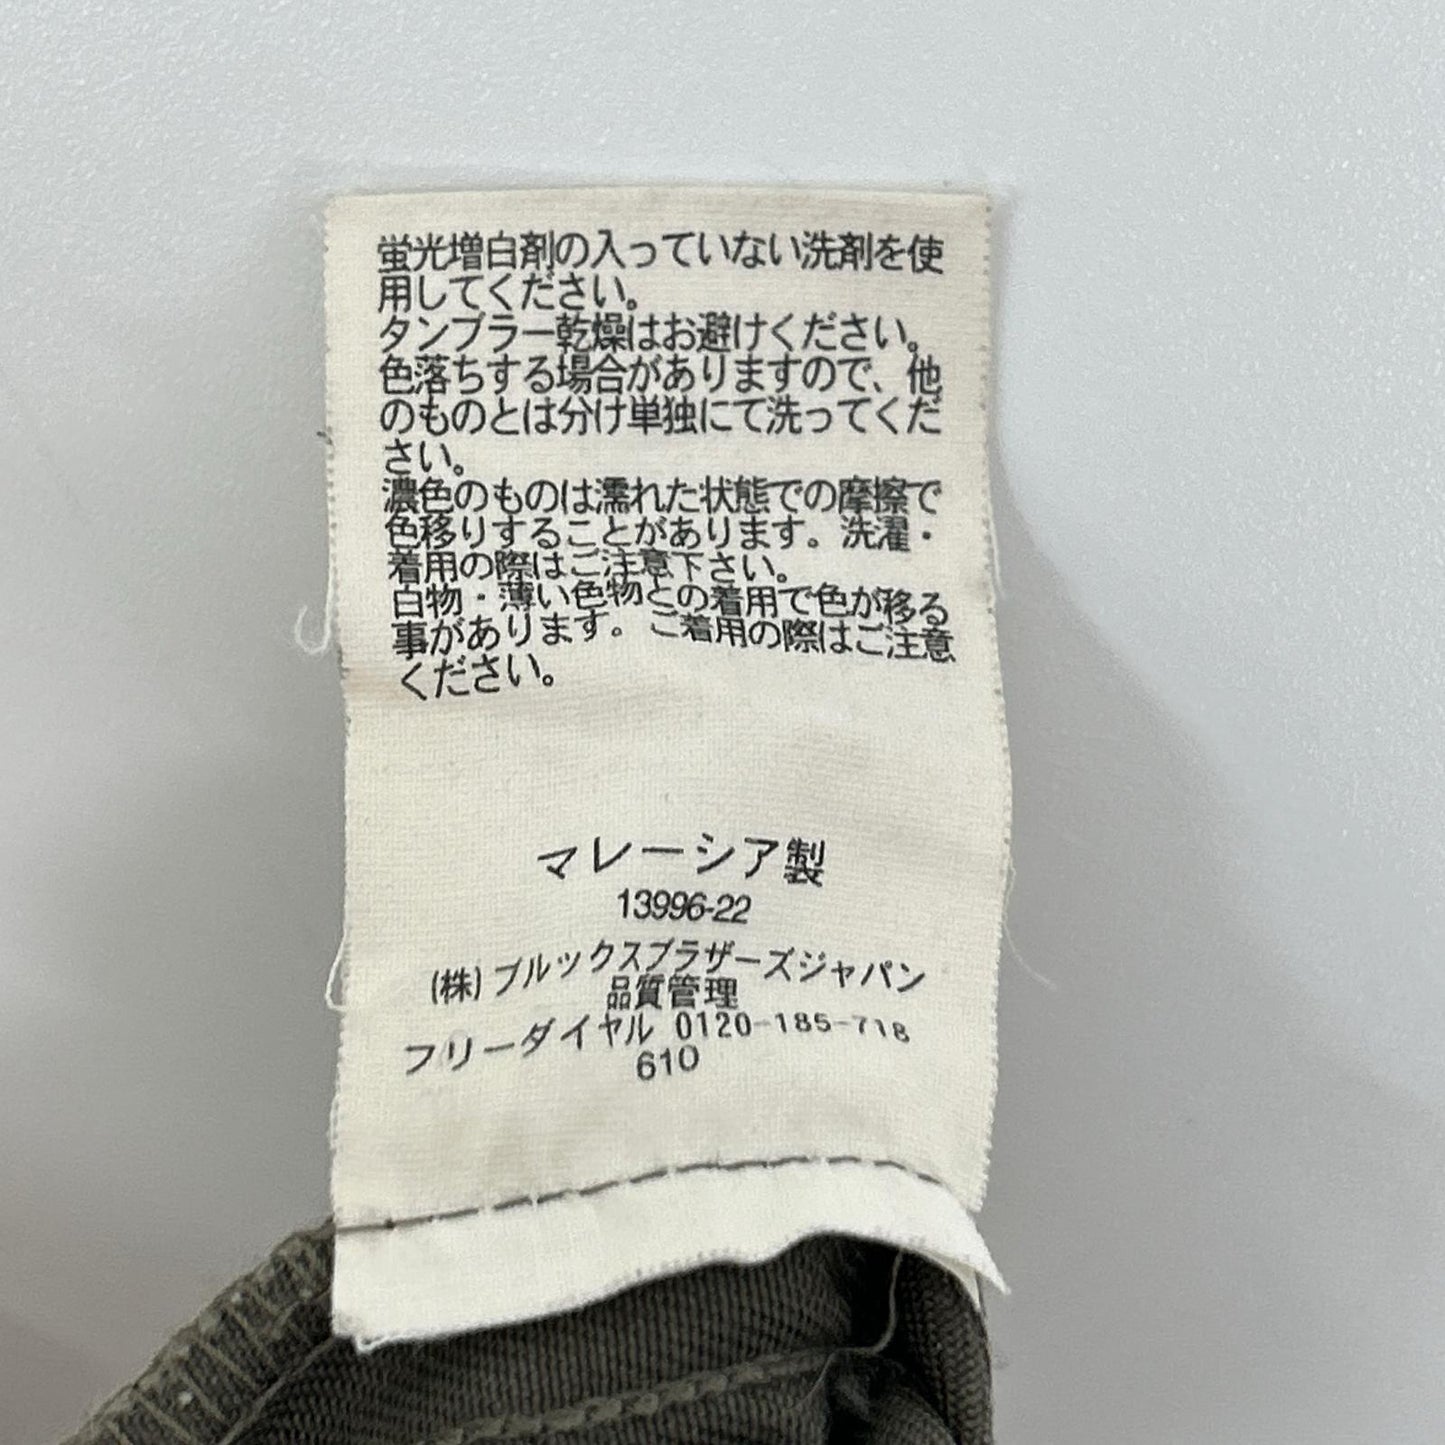 蛍光増白剤の入っていない洗剤を使
用してください。
タンブラー乾燥はお避けください。
色落ちする場合がありますので、他
のものとは分け単独にて洗ってくだ
さい。
濃色のものは濡れた状態での摩擦で
色移りすることがあります。洗濯・
着用の際はご注意下さい。
白物・薄い色物との着用で色が移る
事があります。ご着用の際はご注意
ください。
マレーシア製
13996-22
(株)ブルックスブラザーズジャパン
品質管理
フリーダイヤル 0120-185-718
610